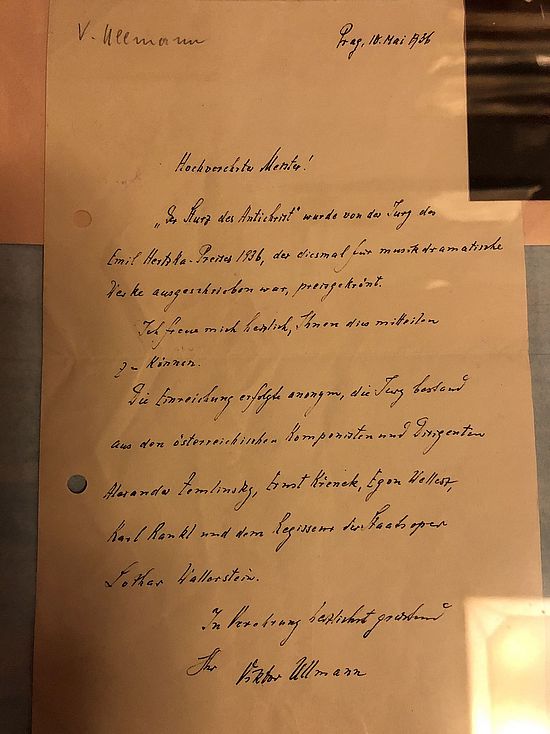 V. Ullmann
Prag, 10. Mai 1936
Hochverehrter Meister!
„Der Sturz des Antichrist" wurde von der Jury des
Emil Hertzka-Preises 1936, der diesmal für musikdramatische
Werke ausgeschrieben war, preisgekrönt.
Ich freue mich herzlich, Ihnen dies mitteilen
zu können.
Die Einreichung erfolgte anonym, die Jury bestand
aus den österreichischen Komponisten und Dirigenten
Alexander Zemlinsky, Ernst Křenek, Egon Wellesz,
Karl Rankl und dem Regisseur der Staatsoper
Lothar Wallerstein.
In Verehrung herzlichst grüssend
Ihr Viktor Ullmann